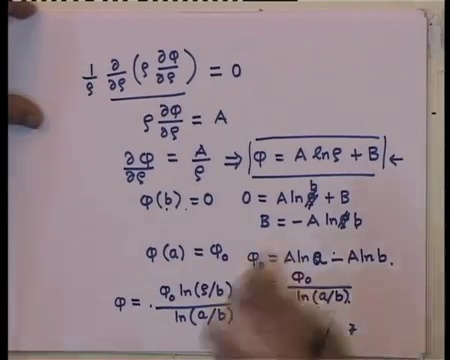 1/ρ ∂/∂ρ (ρ ∂φ/∂ρ) = 0
ρ ∂φ/∂ρ = A
∂φ/∂ρ = A/ρ ⇒ φ = A lnρ + B ←
φ(b) = 0 0 = A ln b + B
B = -A ln b
φ(a) = φ₀ φ₀ = A ln a - A ln b.
φ = φ₀ ln(ρ/b) / ln(a/b) φ₀ / ln(a/b).